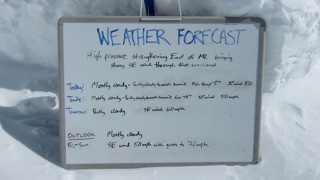 WEATHER FORECAST
High pressure strengthening East of Mt. bringing
strong SE wind through the weekend
Today: Mostly cloudy - Partly cloudy towards summit High temp -5° SE wind 50
Mostly cloudy - Partly cloudy towards summit Low SE wind 50 mph
Partly cloudy SE wind 60 mph
OUTLOOK Mostly cloudy
Fri-Sun SE wind 50 mph with gusts to 70 mph